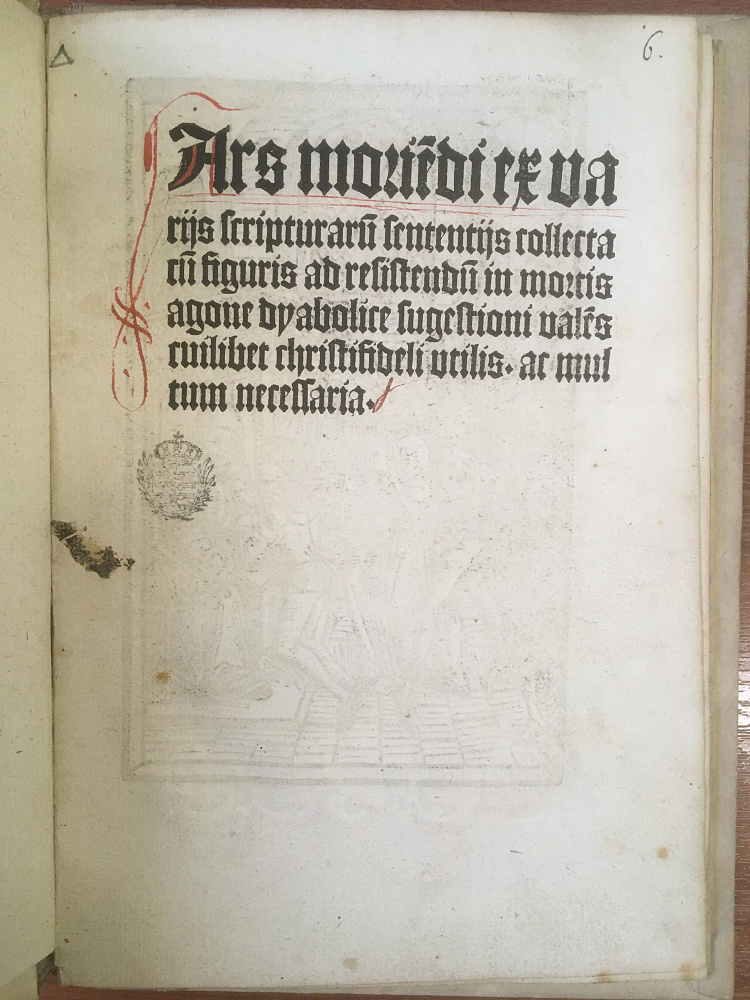 6.
Ars moriẽdi ex va
rijs scripturarũ sententijs collecta
cũ figuris ad resistendũ in mortis
agone dyabolice sugestioni valẽs
cuilibet christifideli utilis. ac mul
tum necessaria.